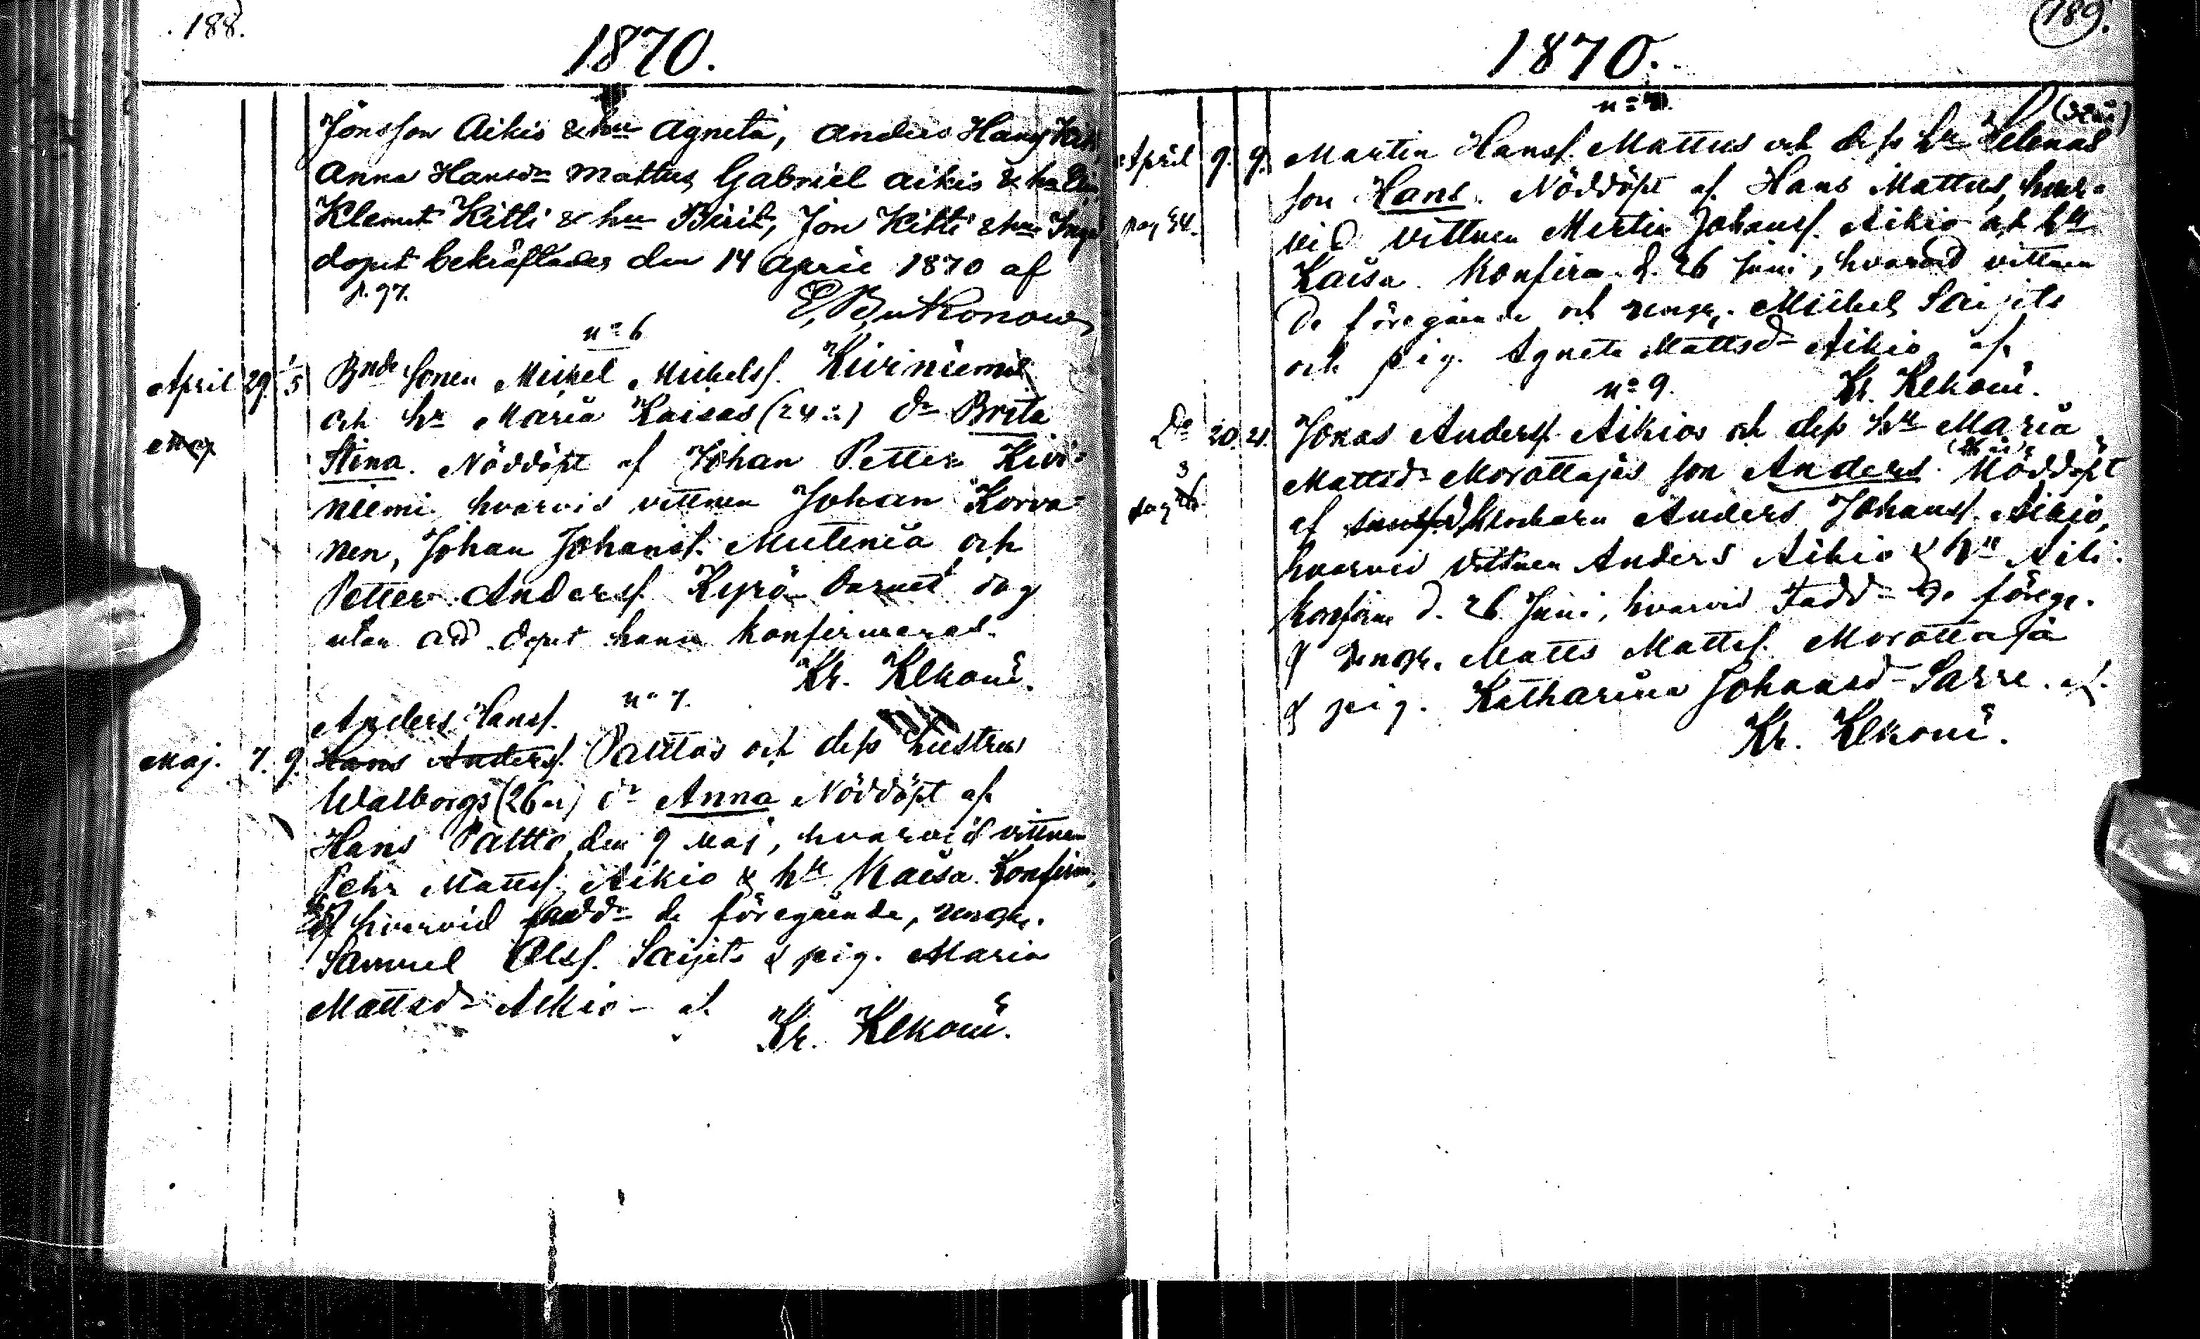 188.
1870.
Jönsson Aikio & hu Agneta, Anders Hans
Anna Hansdr Mattus Gabriel Aikio & hu
Klemet Kitti & hu Birit, Jon Kitti & hu Inga
dopet bekräftades den 14 April 1870 af
p. 97.
no 6
April 29. 1/5 Bnde sonen Mickel Mickelss. Kiviniemis
och hr Maria Kaisas (24 år) dr Brita
Maj
Stina. Nöddöpt af Johan Petter Kivi-
niemi hvarvid vittnen Johan Korva-
nen, Johan Johanss. Mutenia och
Petter Anderss. Kyrö barnet dog
utan att dopet hann konfirmeras.
Kr. Elkoni.
no 7.
Anders Hanss.
Maj. 7. 9. Hans Anderss. Palttos och dess hustrus
Walborgs (26 år) dr Anna Nöddöpt af
Hans Paltto den 9 Maj, hvarvid vittnen
Pehr Mattss. Aikio & hu Kaisa. Konfirm.
hvarvid fadd. de föregående, drängk.
Samuel Olss. Saijets & pig. Maria
Mattsd. Aikio - af
Kr. Elkoni.
189.
1870.
April 9. 9. Martin Hanss. Mattus och dess hu Helenas
son Hans. Nöddöpt af Hans Mattus, hvar-
pag 34. vid vittnen Martin Johanss. Aikio och hu
Kaisa. Konfirm. d. 26 Juni, hvarvid vittnen
de föregående och drängk. Mickel Saijets
och pig. Agneta Mattsd. Aikio af
Kr. Elkoni.
no 9.
Do 20. 21. Jonas Anderss. Aikios och dess hu Maria
Mattsd. Morottajas son Anders. Nöddöpt
af klockarn Anders Johanss. Aikio,
hvarvid vittnen Anders Aikio & hu
konfirm d. 26 Juni, hvarvid Fadd. de föreg.
& drängk. Matts Mattss. Morottaja
& pig. Katharina Johansd. Sarre. af.
Kr. Elkoni.